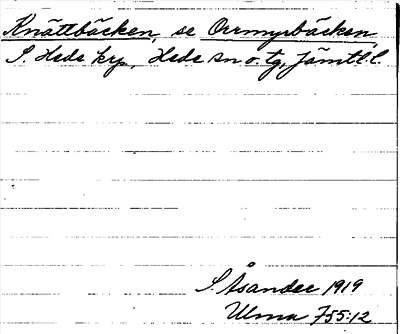 Knättbäcken, se Orrmyrbäcken,
S. Hede kp., Hede sn o. tg, Jämtl. l.
S. Åsander 1919
Ulma 755:12